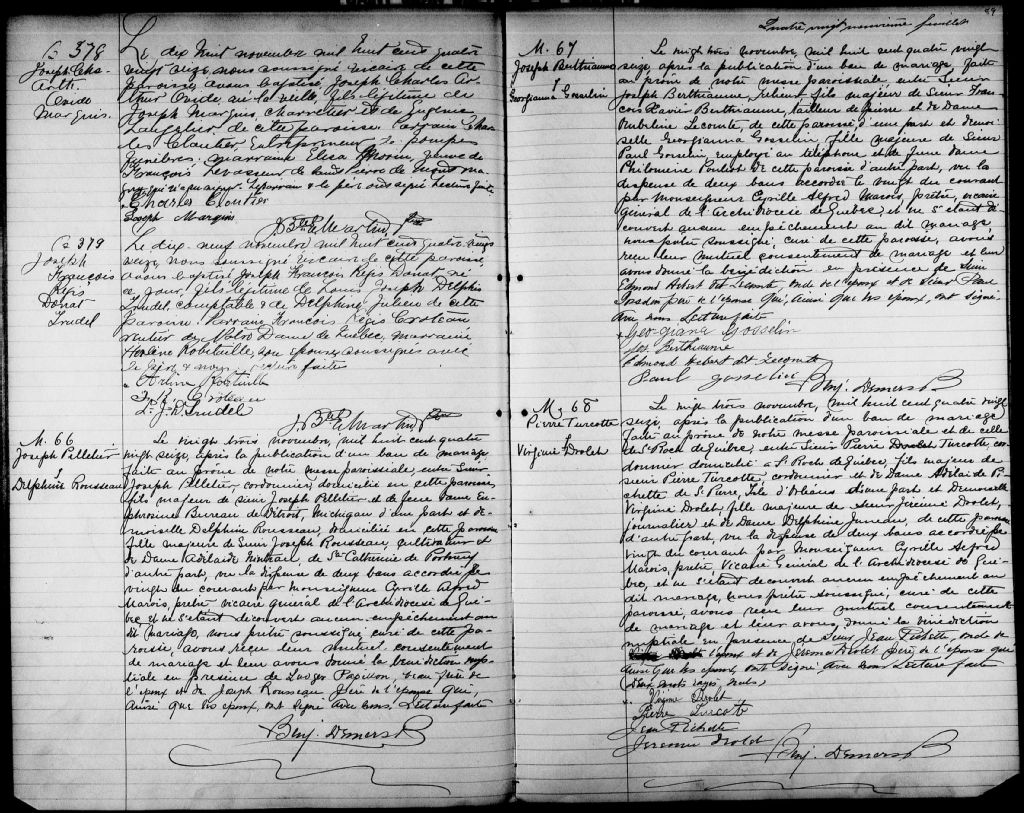 B 378
Joseph Cha-
Arth.
Ovide
Marquis.
Le dix huit novembre mil huit cent quatre
vingt seize, nous soussigné vicaire de cette
paroisse, avons baptisé, Joseph Charles Ar-
thur Ovide, né la veille, fils légitime de
Joseph Marquis, charretier & de Eugénie
Langelier de cette paroisse. Parrain Char-
les Cloutier Entrepreneur de pompes
funèbres, marraine Elisa veuve de
François Levasseur de
Charles Cloutier
Joseph Marquis
J. Bte E. Martin, Ptre
B 379
Joseph
François
Régis
Donat
Trudel
Le dix-neuf novembre mil huit cent quatre vingt
seize, nous soussigné vicaire de cette paroisse,
avons baptisé Joseph François Régis Donat né
ce jour, fils légitime de Louis Joseph Delphis
Trudel, comptable & de Delphine Julien de cette
paroisse. Parrain François Régis Croteau
rentier de Notre Dame de Québec, marraine
Robitaille, son épouse, soussignés avec
le père & nous. Lecture faite
Robitaille
F. R. Croteau
L. J. D. Trudel
J. Bte E. Martin Ptre
M. 66
Joseph Pelletier
&
Delphine Rousseau
Le vingt trois novembre, mil huit cent quatre
vingt seize, après la publication d'un ban de mariage
faite au prône de notre messe paroissiale, entre Sieur
Joseph Pelletier, cordonnier, domicilié en cette paroisse,
fils majeur de Sieur Joseph Pelletier et de feue Dame Eu-
phrosine Bureau de Détroit, Michigan d'une part et de-
moiselle Delphine Rousseau, domiciliée en cette paroisse
fille majeure de Sieur Joseph Rousseau, cultivateur et
de Dame Adélaïde de Ste Catherine de Portneuf
d'autre part, vu la dispense de deux bans accordée le
vingt du courant par Monseigneur Cyrille Alfred
Marois, prêtre, vicaire général de l'Archidiocèse de Qué-
bec, et ne s'étant découvert aucun empêchement au
dit mariage, nous prêtre soussigné, curé de cette pa-
roisse avons reçu leur mutuel consentement
de mariage et leur avons donné la bénédiction nup-
tiale en présence de Ludger Papillon, beau frère de
l'époux et de Joseph Rousseau père de l'épouse qui,
ainsi que les époux, ont signé avec nous. Lecture faite
Benj. Demers Ptre
89
Quatre vingt neuvième feuillet
M. 67
Joseph Berthiaume
&
Georgianna Gosselin
Le vingt trois novembre, mil huit cent quatre vingt
seize, après la publication d'un ban de mariage, faite
au prône de notre messe paroissiale entre Sieur
Joseph Berthiaume, relieur, fils majeur de Sieur Fran-
çois Xavier Berthiaume, tailleur de pierre et de Dame
Lecomte, de cette paroisse d'une part et demoi-
selle Georgianna Gosselin, fille majeure de Sieur
Paul Gosselin employé au téléphone et de feue dame
Philomène de cette paroisse d'autre part, vu la
dispense de deux bans accordée le vingt du courant
par Monseigneur Cyrille Alfred Marois, prêtre, vicaire
général de l'Archidiocèse de Québec, et ne s'étant dé-
couvert aucun empêchement au dit mariage,
nous prêtre soussigné, curé de cette paroisse, avons
reçu leur mutuel consentement de mariage et leur
avons donné la bénédiction en présence de Sieur
Edmond Hébert dit Lecomte, oncle de l'époux et de Sieur Paul
Gosselin père de l'épouse qui, ainsi que les époux, ont signé
avec nous Lecture faite
Georgiana Gosselin
Jos Berthiaume
Edmond Hebert dit Lecomte
Paul Gosselin
Benj. Demers Ptre
M. 68
Pierre Turcotte
&
Virginie Drolet
Le vingt trois novembre, mil huit cent quatre vingt
seize, après la publication d'un ban de mariage
faite au prône de notre messe paroissiale et de celle
de St Roch de Québec, entre Sieur Pierre Turcotte, cor-
donnier domicilié à St Roch de Québec, fils majeur de
sieur Pierre Turcotte, cordonnier et de Dame Adélaïde Pi-
chette de St Pierre, Île d'Orléans d'une part et Demoiselle
Virginie Drolet fille majeure de sieur Jérémie Drolet,
journalier et de Dame Delphine Juneau, de cette paroisse
d'autre part, vu la dispense de deux bans accordée le
vingt du courant par Monseigneur Cyrille Alfred
Marois, prêtre, Vicaire Général de l'Archidiocèse de Qué-
bec, et ne s'étant découvert aucun empêchement au
dit mariage, nous prêtre soussigné, curé de cette
paroisse, avons reçu leur mutuel consentement
de mariage et leur avons donné la bénédiction
nuptiale en présence de Sieur Jean Pichette, oncle de
l'époux et de Jérémie Drolet père de l'épouse qui
ainsi que les époux, ont signé avec nous Lecture faite
deux mots rayés nuls.
Virginie Drolet
Pierre Turcotte
Jean Pichette
Jeremie Drolet
Benj. Demers Ptre